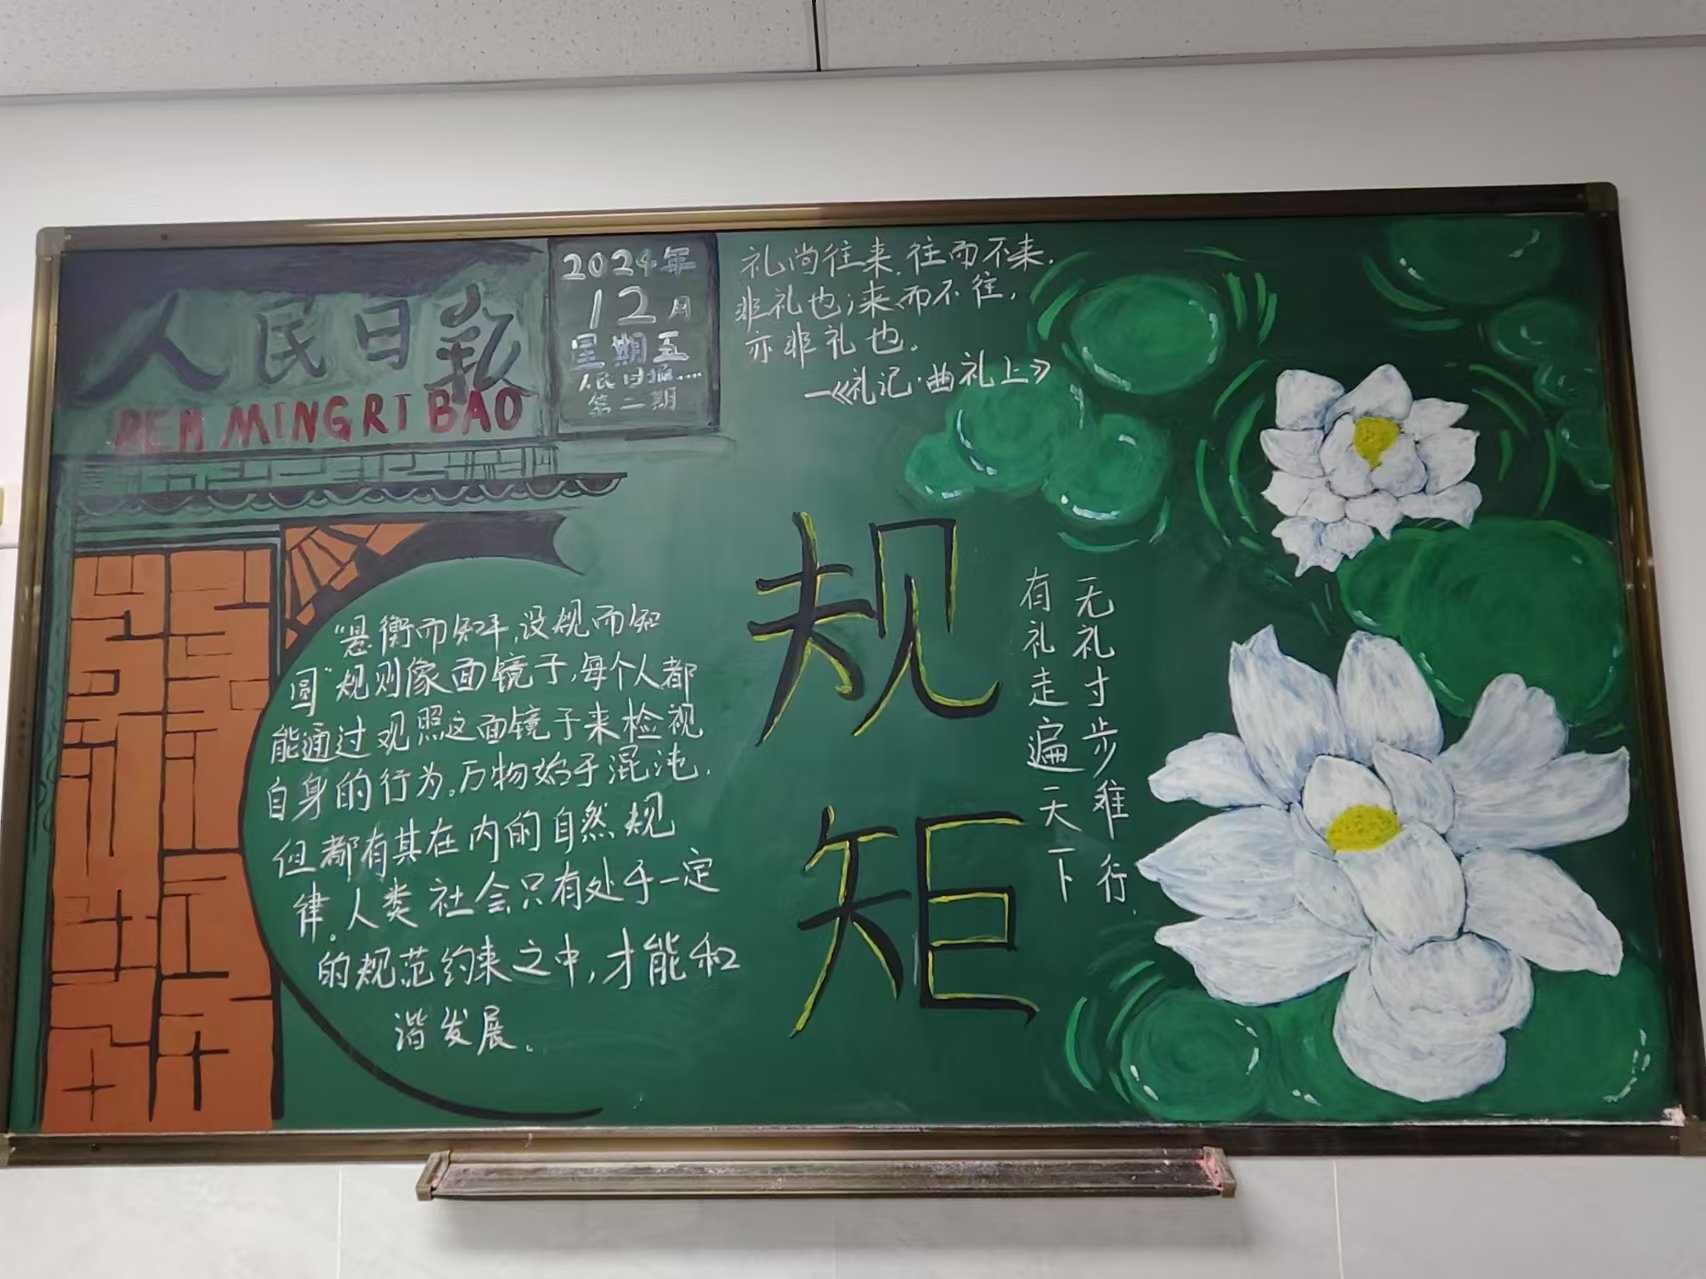 人民日报
REN MINGRI BAO
2024年
12月
星期五
人民日报....
第二期
礼尚往来,往而不来,
非礼也;来而不往,
亦非礼也。
—《礼记·曲礼上》
规
矩
无礼寸步难行,
有礼走遍天下
“悬衡而知平,设规而知
圆”规则像面镜子,每个人都
能通过观照这面镜子来检视
自身的行为。万物始于混沌,
但都有其在内的自然规
律。人类社会只有处于一定
的规范约束之中,才能和
谐发展。